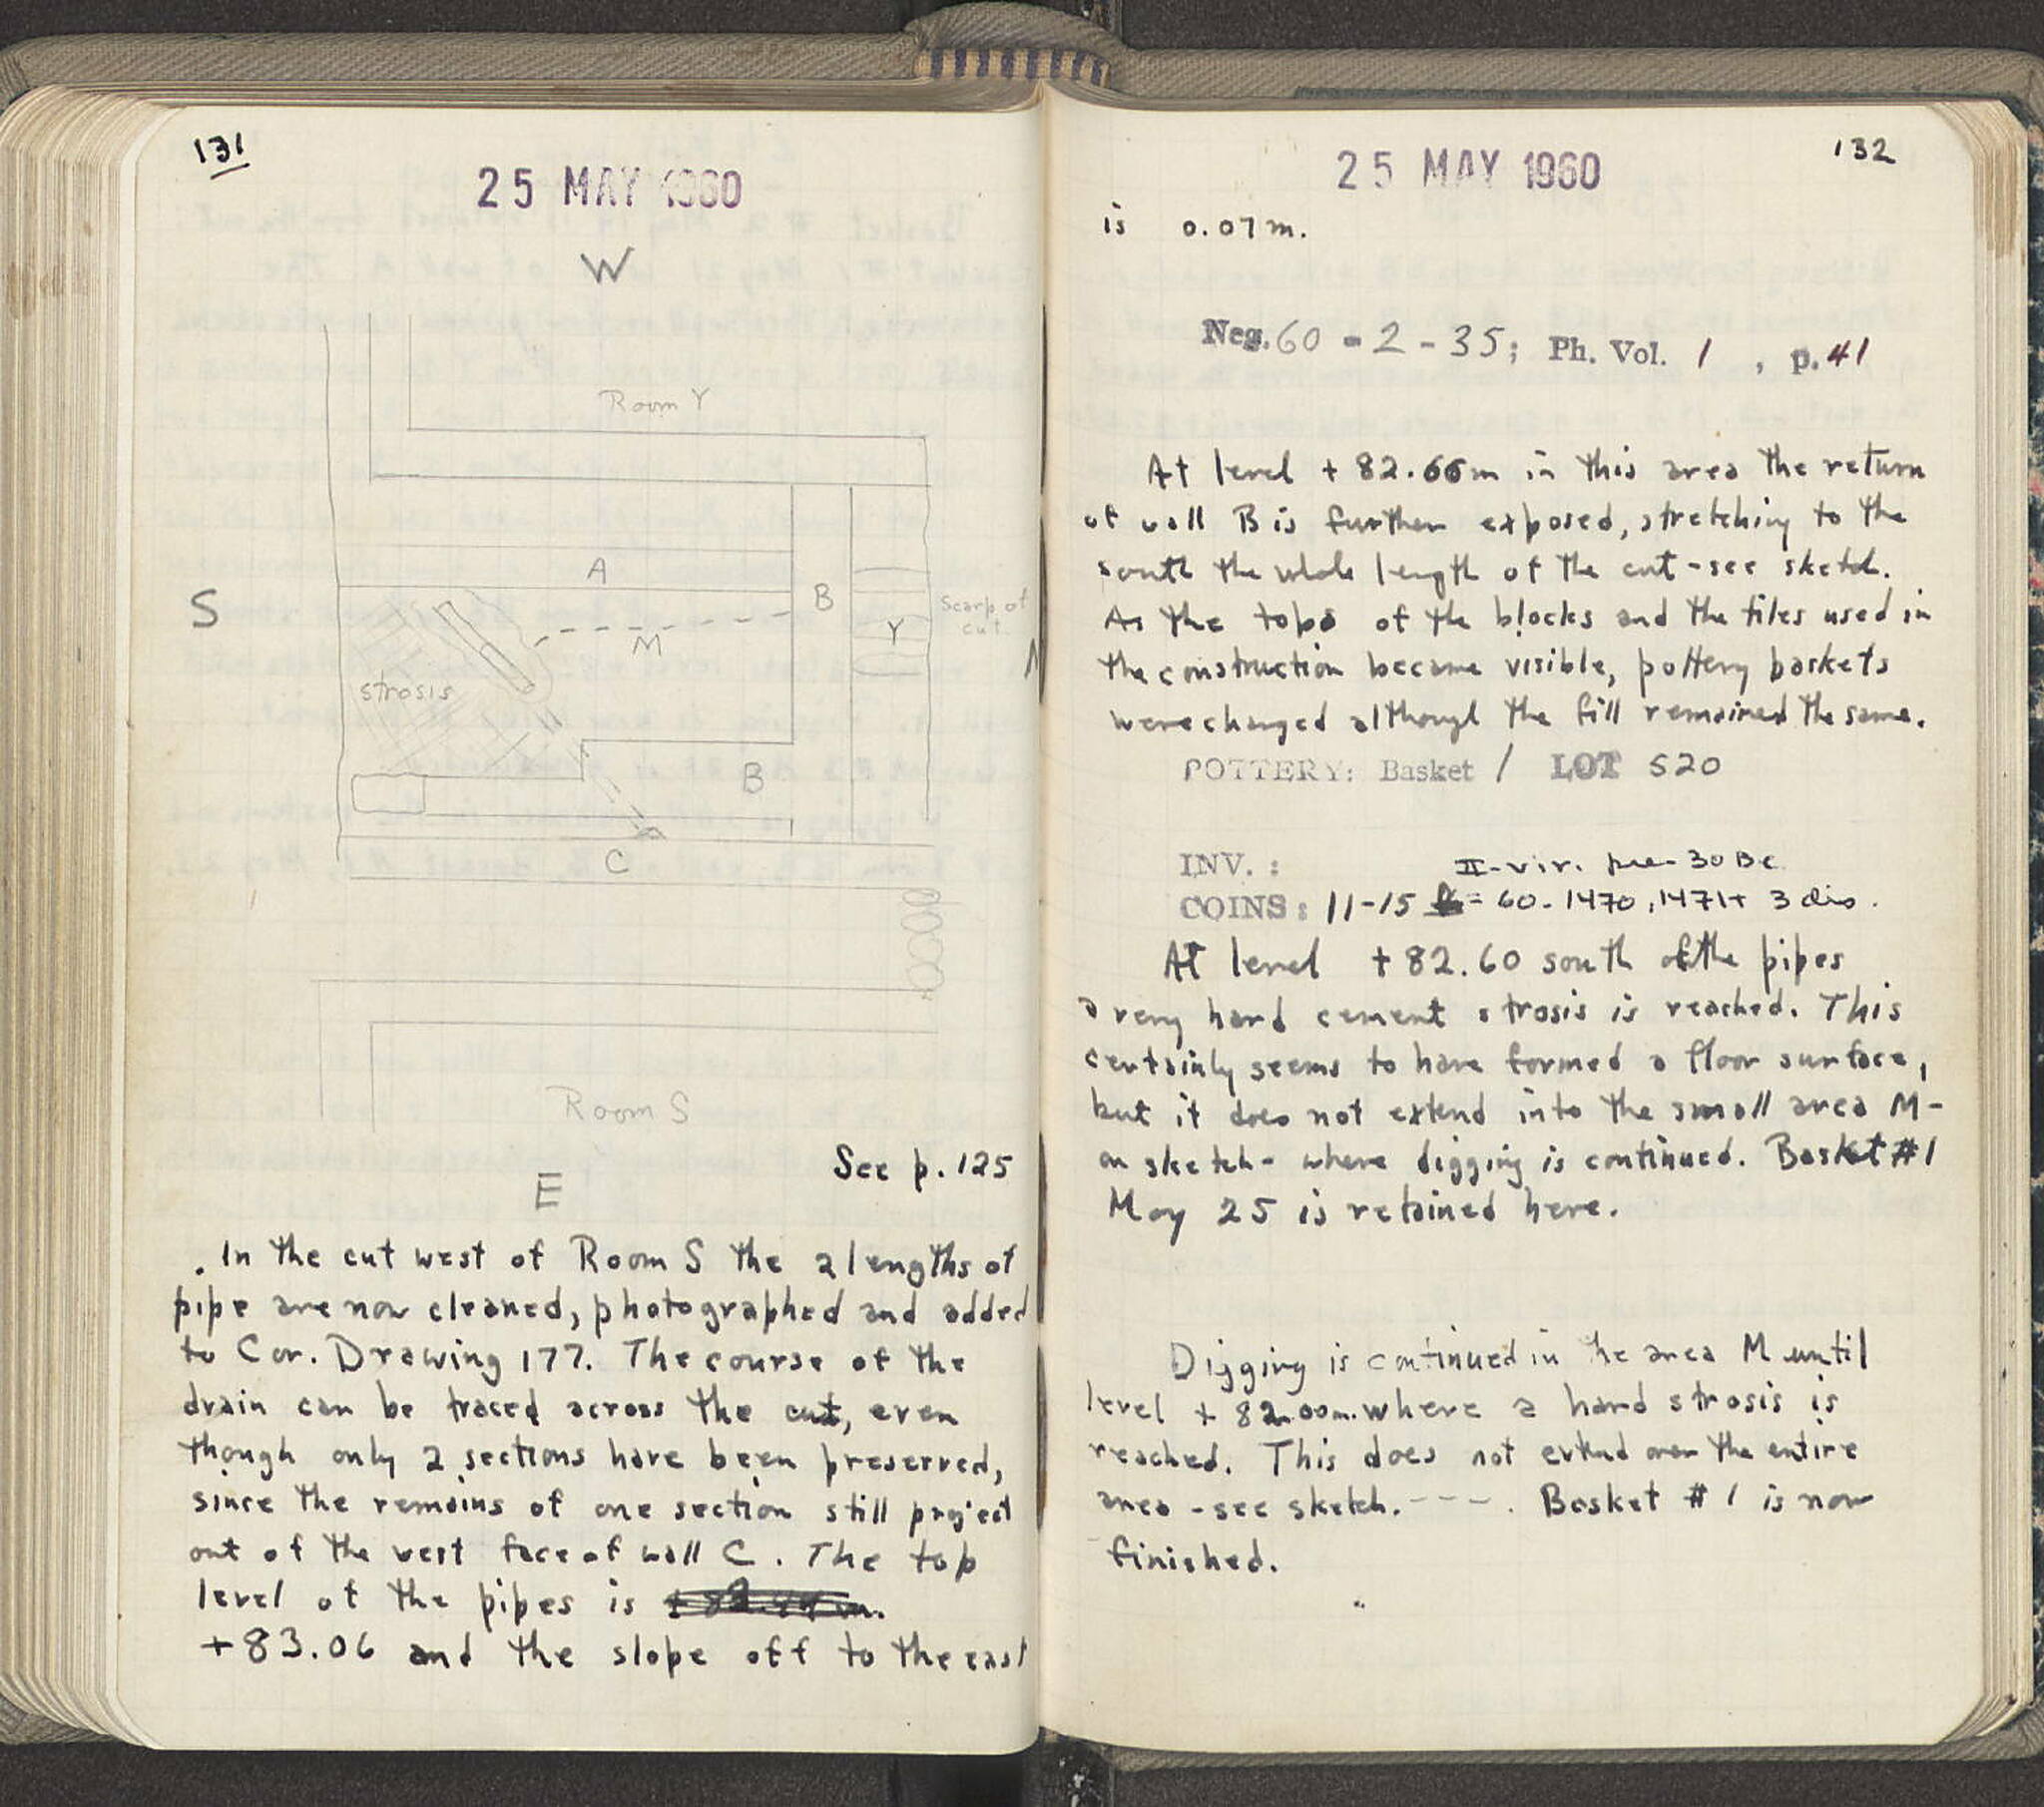 131
25 MAY 1960
W
Room Y
A
S
B
scarp of
cut.
M
Y
N
strosis
B
C
Room S
See p. 125
E
In the cut west of Room S the 2 lengths of
pipe are now cleaned, photographed and added
to Cor. Drawing 177. The course of the
drain can be traced across the cut, even
though only 2 sections have been preserved,
since the remains of one section still project
out of the west face of wall C. The top
level of the pipes is
+83.06 and the slope off to the east
132
25 MAY 1960
is 0.07m.
Neg. 60-2-35; Ph. Vol. 1, p. 41
At level +82.66m in this area the return
of wall B is further exposed, stretching to the
south the whole length of the cut - see sketch.
As the tops of the blocks and the tiles used in
the construction became visible, pottery baskets
were changed although the fill remained the same.
POTTERY: Basket 1 LOT 520
INV.: II-vir. pre-30 BC
COINS: 11-15 = 60-1470, 1471+ 3 dis.
At level +82.60 south of the pipes
a very hard cement strosis is reached. This
certainly seems to have formed a floor surface,
but it does not extend into the small area M-
on sketch - where digging is continued. Basket #1
May 25 is retained here.
Digging is continued in the area M until
level +82.00m. where a hard strosis is
reached. This does not extend over the entire
area - see sketch. ---. Basket #1 is now
finished.